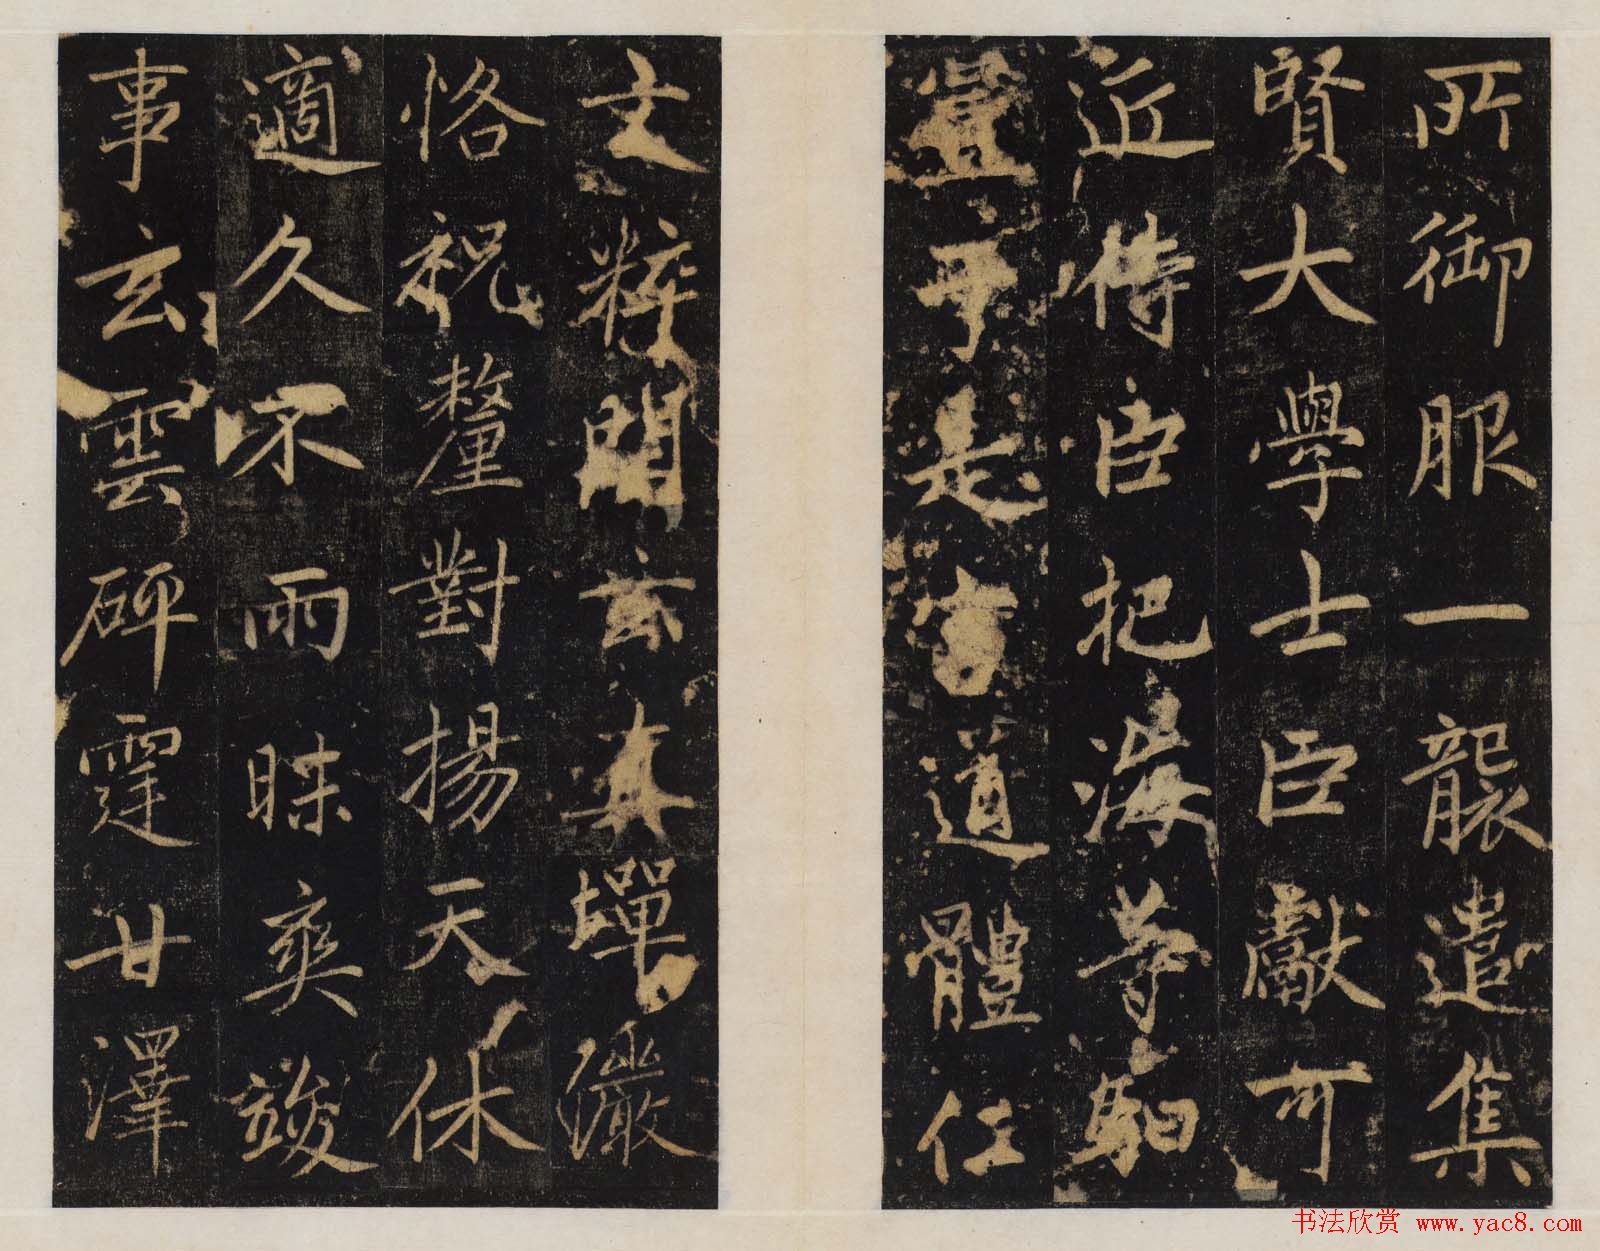 所御服一襲遣集
賢大學士臣獻可
近侍臣把海等馹
置于是宫道體仁
文粹開玄真殫儼
恪祝釐對揚天休
適久不雨昧爽竣
事玄雲砰霆甘澤
书法欣赏 www.yac8.com